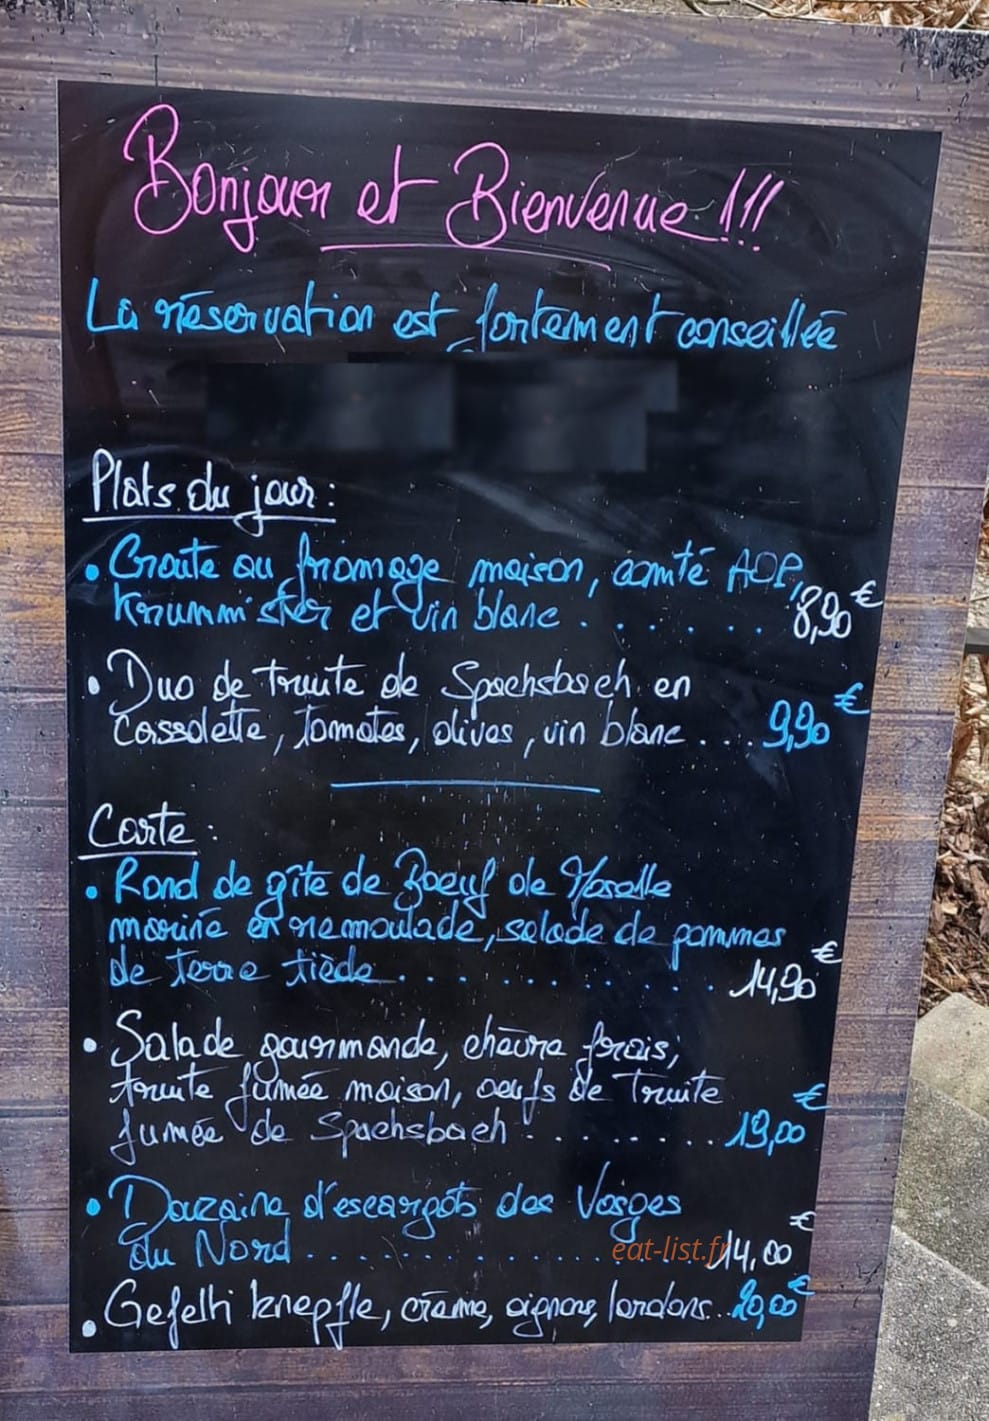 Bonjour et Bienvenue !!!
La réservation est fortement conseillée
Plats du jour :
• Croute au fromage maison, comté AOP,
Krumm'ster et vin blanc . . . . . . . 8,90 €
• Duo de truite de Spachsbach en
Cassolette, tomates, olives, vin blanc . . . . 9,90 €
Carte :
• Rond de gîte de Boeuf de Moselle
mariné en remoulade, salade de pommes
de terre tiède . . . . . . . . . . 14,90 €
• Salade gourmande, chèvre frais,
truite fumée maison, oeufs de Truite
fumée de Spachsbach . . . . . . . . . 19,00 €
• Douzaine d'escargots des Vosges
du Nord . . . . . . . . . . . . . . . 14,00 €
eat-list.fr
• Gefelti knepfle, crème, oignons, lardons... 20,00 €